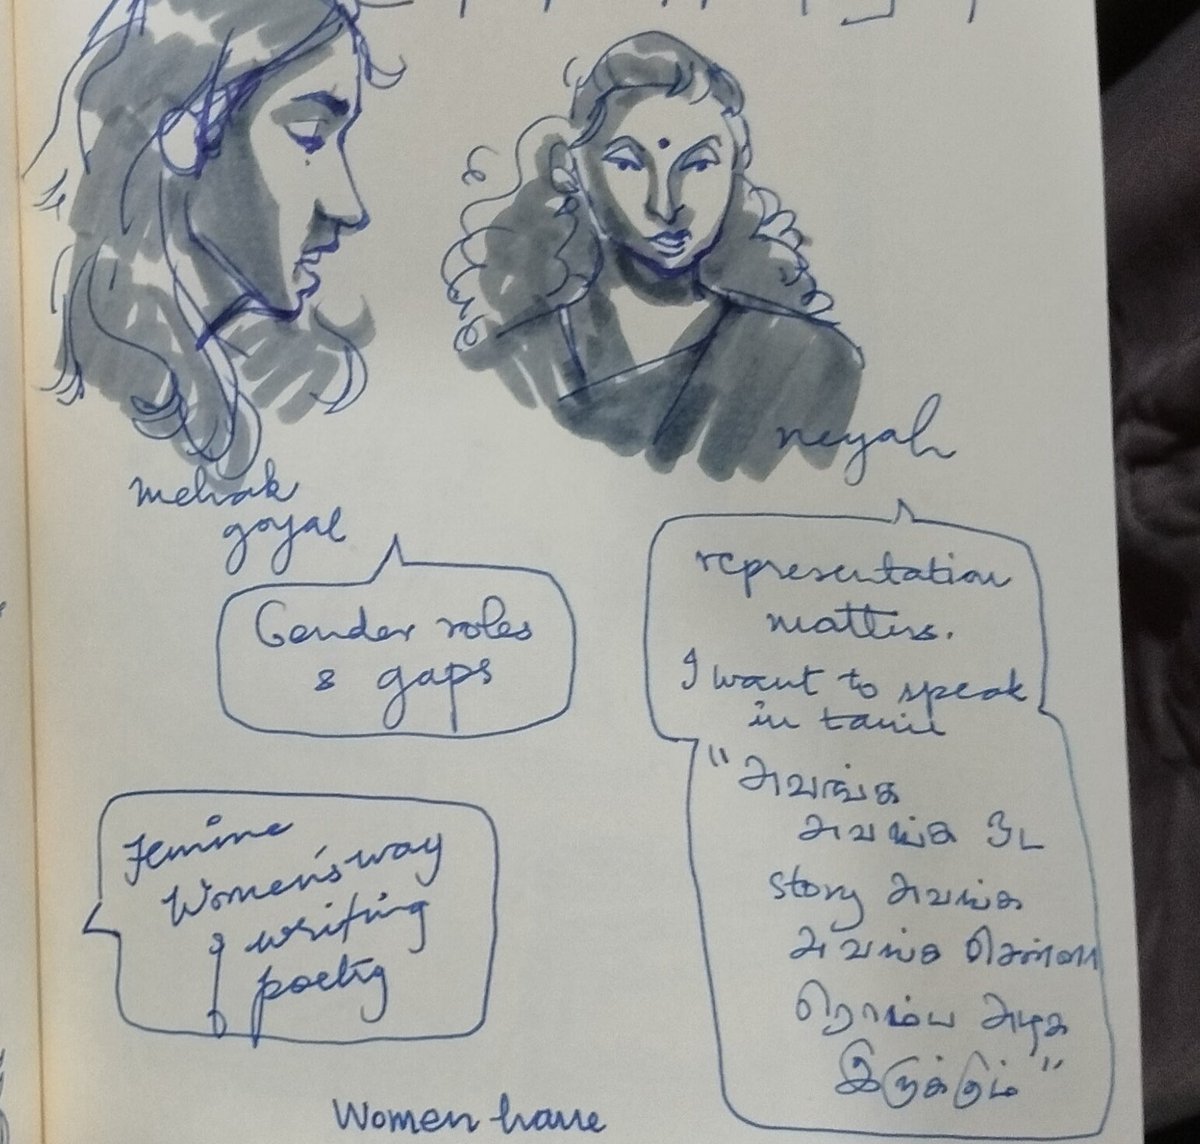 mehak
goyal
neyah
Gender roles
& gaps
representation
matters.
I want to speak
in tamil
"அவங்க
அவங்க ஓட
story அவங்க
அவங்க சொன்னா
ரொம்ப அழகா
இருக்கும்"
Femine
Women's way
of writing
poetry
Women have